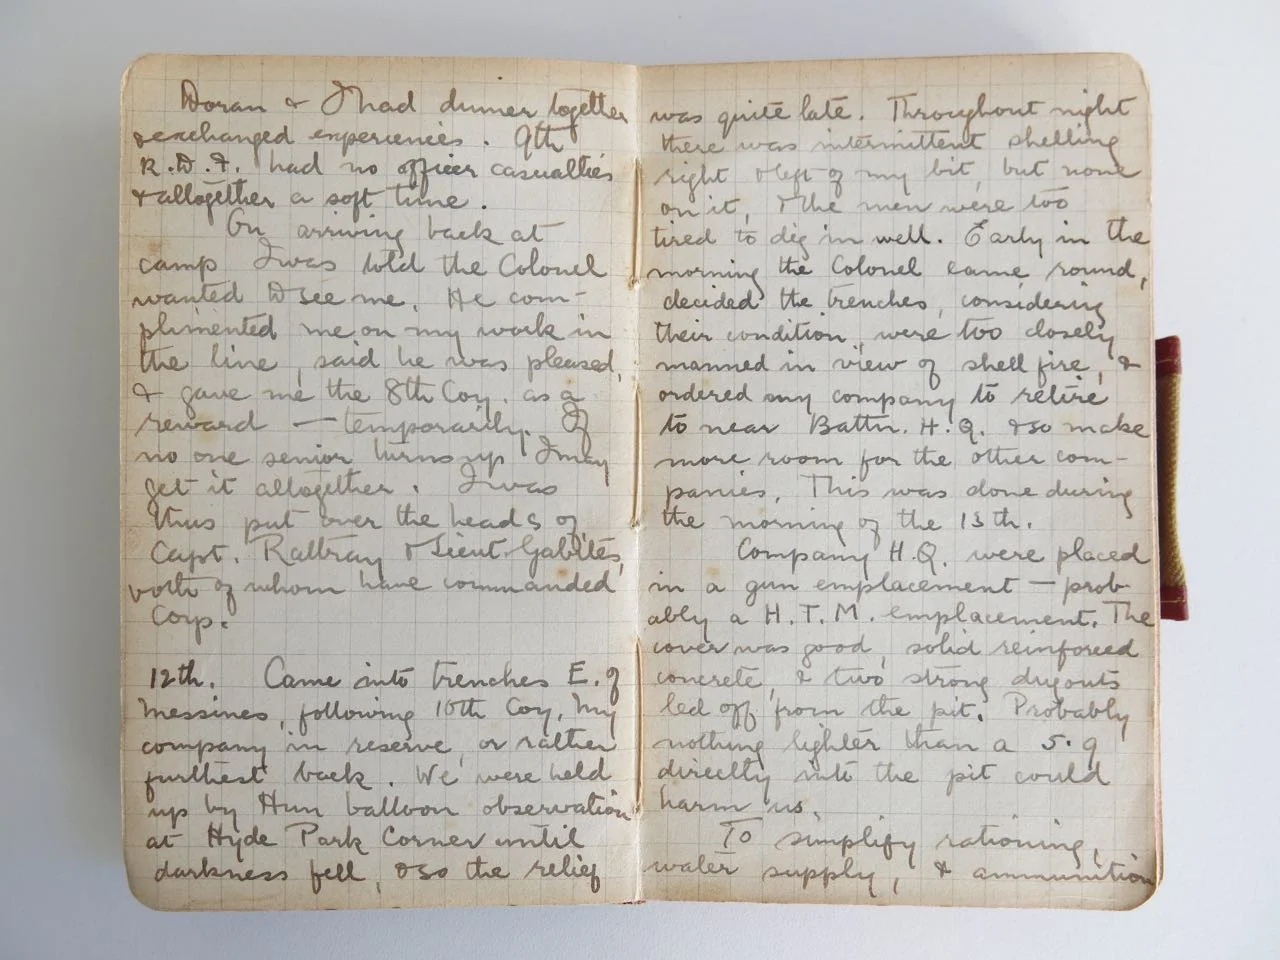 Doran & I had dinner together
& exchanged experiences. 9th
R.D.F. had no officer casualties
& altogether a soft time.
On arriving back at
camp I was told the Colonel
wanted to see me. He com-
plimented me on my work in
the line, said he was pleased,
& gave me the 8th Coy. as a
reward — temporarily. If
no one senior turns up I may
get it altogether. I was
thus put over the heads of
Capt. Rattray & Lieut. Gabites,
both of whom have commanded
Corp.
12th. Came into trenches E. of
Messines, following 10th Coy, my
company in reserve, or rather
furthest back. We were held
up by Hun balloon observation
at Hyde Park Corner until
darkness fell, & so the relief
was quite late. Throughout night
there was intermittent shelling
right & left of my bit, but none
on it, & the men were too
tired to dig in well. Early in the
morning the Colonel came round,
decided the trenches, considering
their condition, were too closely
manned in view of shell fire, &
ordered my company to retire
to near Battn. H.Q. & so make
more room for the other com-
panies. This was done during
the morning of the 13th.
Company H.Q. were placed
in a gun emplacement — prob-
ably a H.T.M. emplacement. The
cover was good, solid reinforced
concrete, & two strong dugouts
led off from the pit. Probably
nothing lighter than a 5.9
directly into the pit could
harm us.
To simplify rationing,
water supply, & ammunition